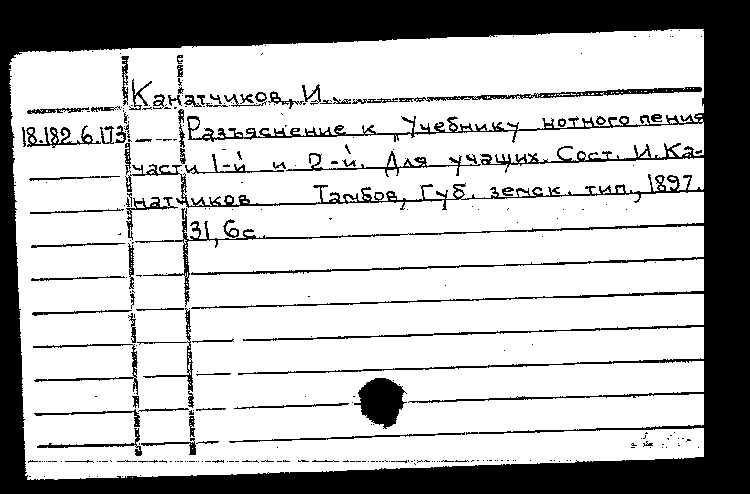 Канатчиков, И.
18.182.6.173 Разъяснение к „Учебнику нотного пения"
части 1-й и 2-й. Для учащих. Сост. И. Ка-
натчиков. Тамбов, Губ. земск. тип., 1897.
31, 6с.